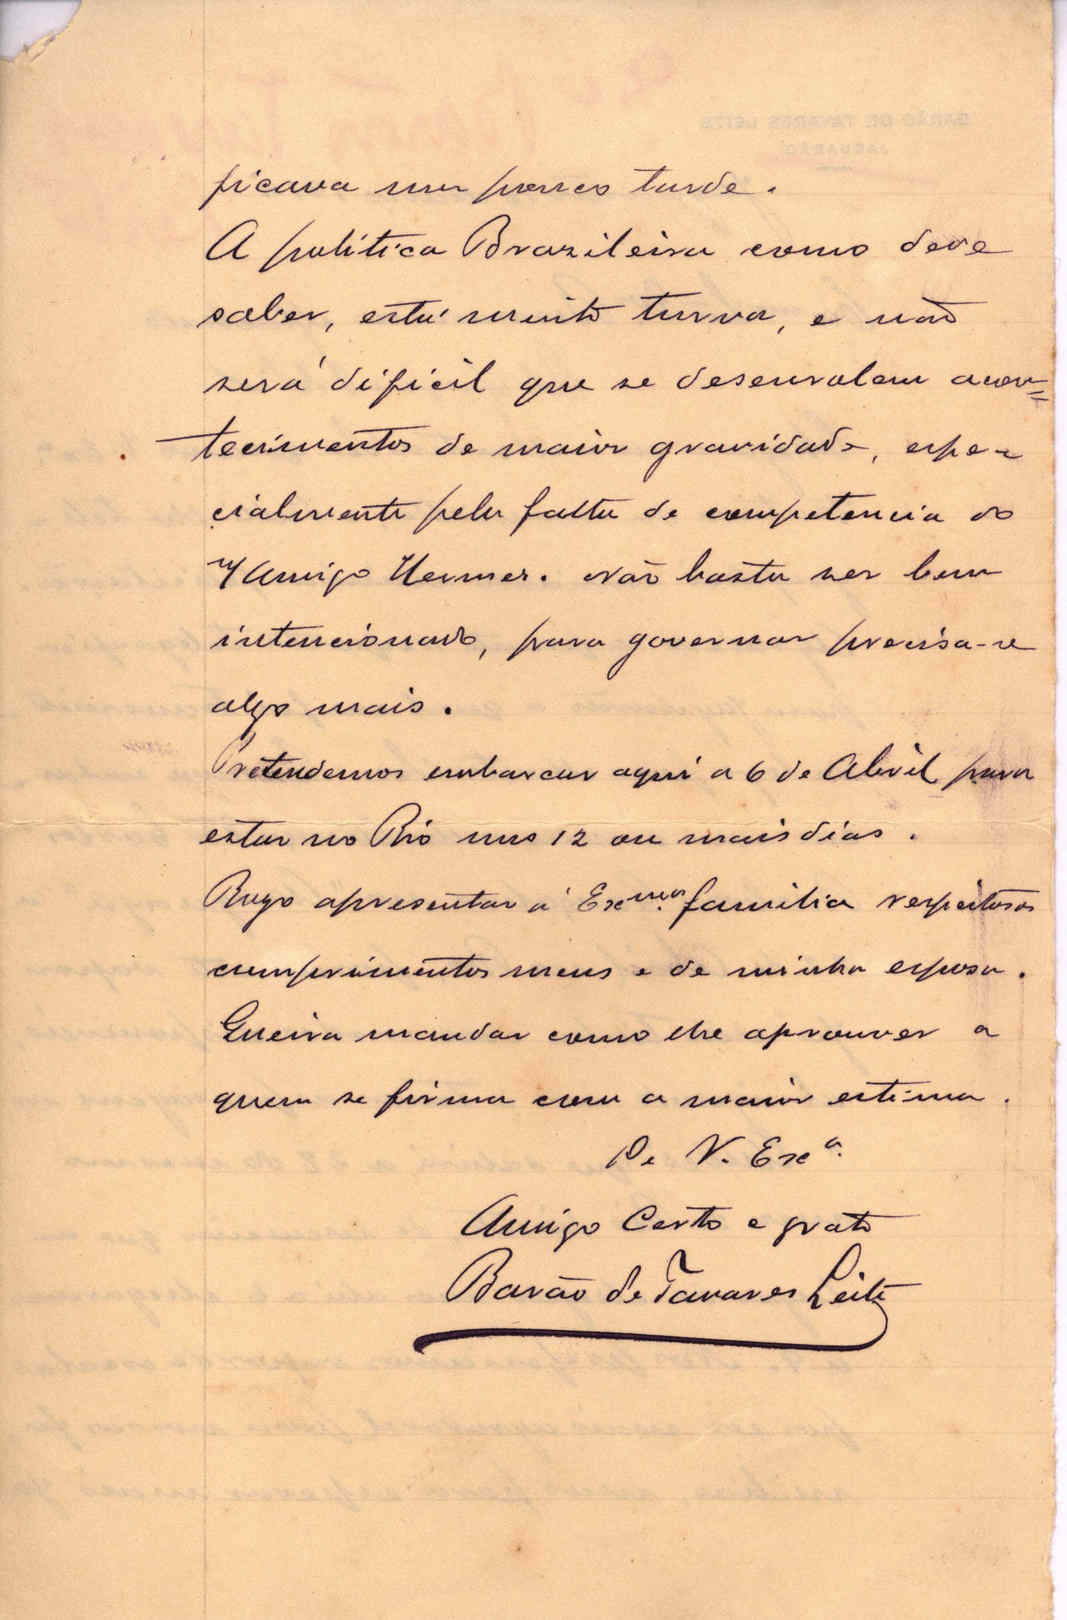 ficava um pouco tarde.
A politica Brazileira como deve
saber, está muito turva, e não
será dificil que se desenrolem acon=
tecimentos de maior gravidade, espe-
cialmente pela falta de competencia do
Amigo Hermes. Não basta ser bem
intencionado, para governar precisa-se
algo mais.
Pretendemos embarcar aqui a 6 de Abril para
estar no Rio uns 12 ou mais dias.
Rogo apresentar á Exma. familia respeitosos
cumprimentos meus e de minha esposa.
Queira mandar como lhe aprouver a
quem se firma com a maior estima.
De V. Exa.
Amigo Certo e grato
Barão de Tavares Leite
BARÃO DE TAVARES LEITE